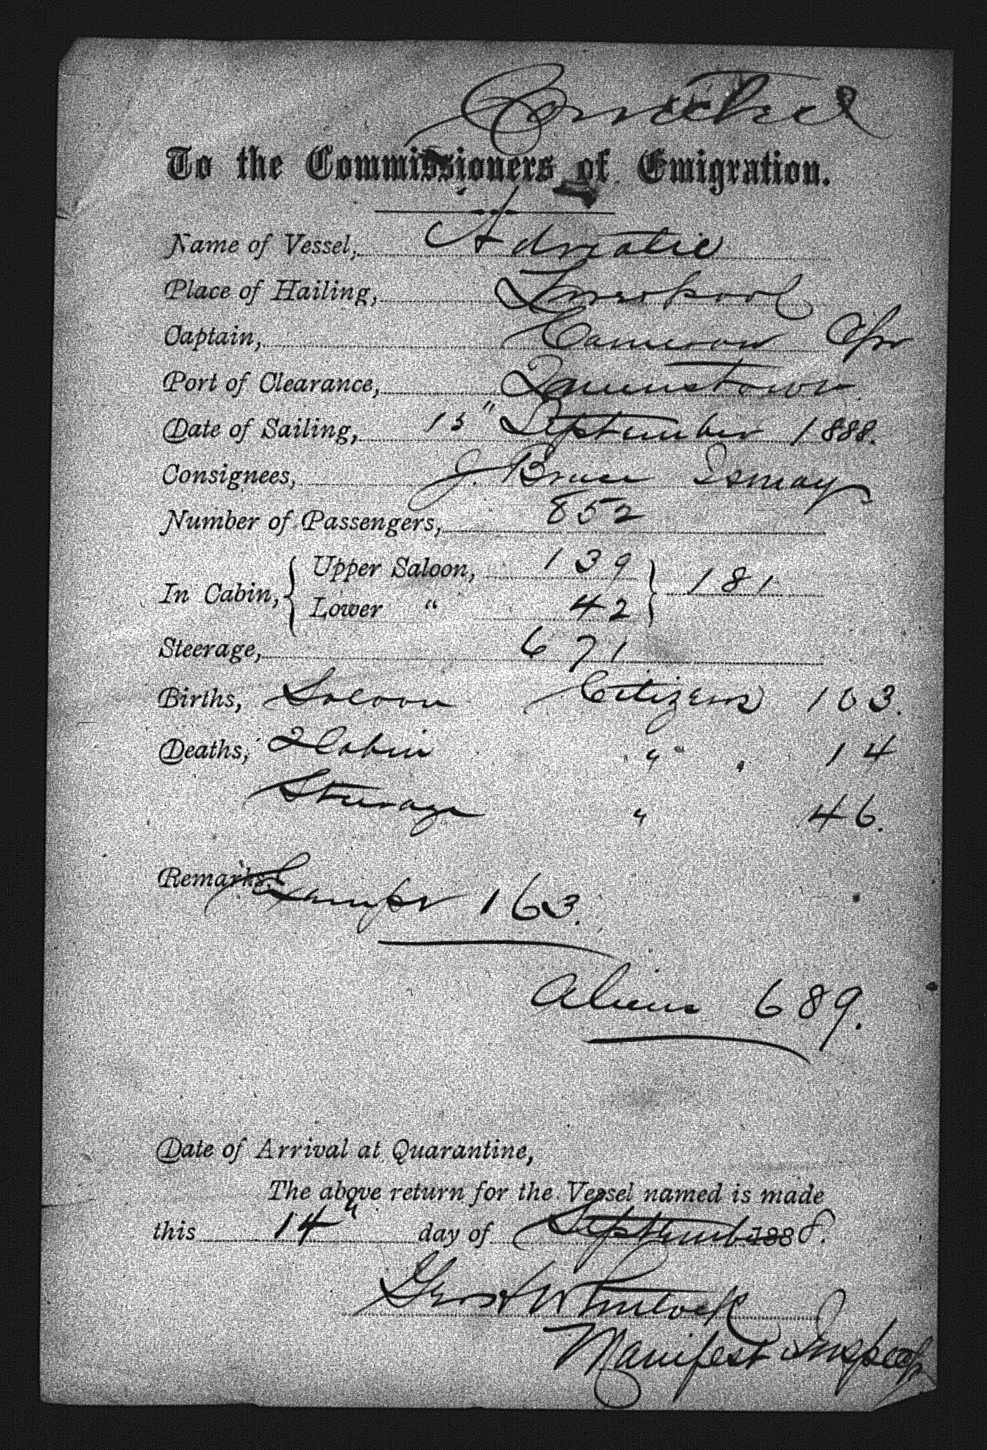 Corrected
To the Commissioners of Emigration.
Name of Vessel, Adriatic
Place of Hailing, Liverpool
Captain, Cameron
Port of Clearance, Queenstown
Date of Sailing, 13" September 1888.
Consignees, J. Bruce Ismay
Number of Passengers, 852
In Cabin, { Upper Saloon, 139 } 181
Lower " 42
Steerage, 671
Births, Saloon Citizens 103.
Deaths, 2 Cabin " 14
Steerage " 46.
Remarks. 163.
Aliens 689.
Date of Arrival at Quarantine,
The above return for the Vessel named is made
this 14" day of September 1888.
Geo W Whitlock
Manifest Inspector